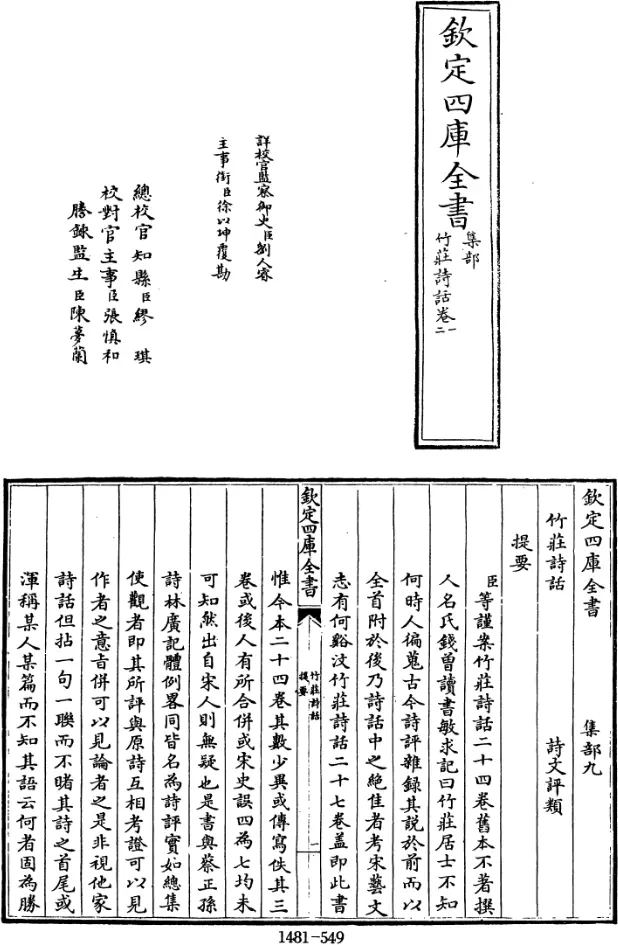 欽定四庫全書
集部
竹莊詩話卷一
二
詳校官監察御史臣劉人睿
主事銜臣徐以坤覆勘
總校官知縣臣繆琪
校對官主事臣張慎和
謄錄監生臣陳夢蘭
欽定四庫全書
集部九
竹莊詩話
詩文評類
提要
臣等謹案竹莊詩話二十四卷舊本不著撰
人名氏錢曽讀書敏求記曰竹莊居士不知
何時人徧蒐古今詩評雜録其說於前而以
全首附於後乃詩話中之絶佳者考宋藝文
志有何谿汶竹莊詩話二十七卷蓋即此書
欽定四庫全書
竹莊詩話
提要
一
惟今本二十四卷其數少異或傳寫佚其三
卷或後人有所合併或宋史誤四為七均未
可知然出自宋人則無疑也是書與蔡正孫
詩林廣記體例畧同皆名為詩評實如總集
使觀者即其所評與原詩互相考證可以見
作者之意旨併可以見論者之是非視他家
詩話但拈一句一聯而不睹其詩之首尾或
渾稱某人某篇而不知其語云何者固為勝
1481-549